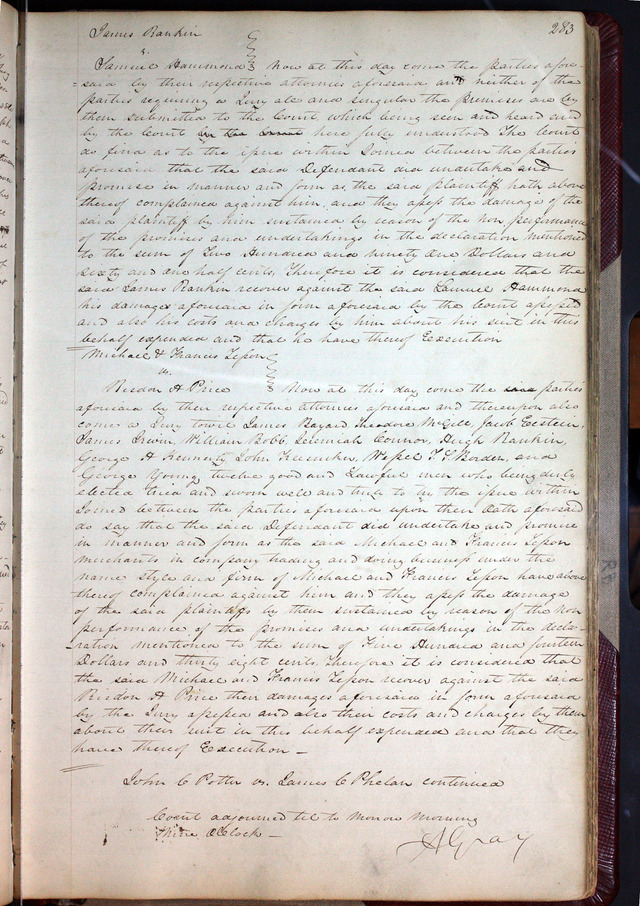 283
James Rankin
vs.
Samuel Hammond Now at this day come the parties afore-
-said by their respective attornies aforesaid and neither of the
parties requiring a Jury all and singular the premises are by
them submitted to the Court, which being seen and heard and
by the Court in the Court here fully understood The Court
do find as to the issue within Joined between the parties
aforesaid that the said Defendant did undertake and
promise in manner and form as the said plaintiff hath above
thereof complained against him, and they assess the damage of the
said plaintiff by him sustained by reason of the non performance
of the promises and undertakings in the declaration mentioned
to the sum of Two Hundred and ninety One Dollars and
sixty and one half cents, Therefore it is considered that the
said James Rankin recover against the said Samuel Hammond
his damages aforesaid in form aforesaid by the Court assessed
and also his costs and charges by him about his suit in this
behalf expended and that he have thereof Execution
Michael & Francis Tesson
vs.
Risdon H Price Now at this day come the said parties
aforesaid by their respective attornies aforesaid and thereupon also
come a Jury towit James Bayard Theodore McGill, Jacob Eestein,
James Irwin, William Bobb, Jeremiah Connor, Hugh Rankin,
George H Kennerly, John Wessel T G Borden, and
George Young twelve good and Lawful men who being duly
elected tried and sworn well and truly to try the issue within
Joined between the parties aforesaid upon their Oath aforesaid
do say that the said Defendant did undertake and promise
in manner and form as the said Michael and Francis Tesson
merchants in company trading and doing business under the
name style and firm of Michael and Francis Tesson have above
thereof complained against him and they assess the damage
of the said plaintiffs by them sustained by reason of the non
performance of the promises and undertakings in the decla-
-ration mentioned to the sum of Five Hundred and fourteen
Dollars and thirty eight cents, Therefore it is considered that
the said Michael and Francis Tesson recover against the said
Risdon H Price their damages aforesaid in form aforesaid
by the Jury assessed and also their costs and charges by them
about their suit in this behalf expended and that they
have thereof Execution –
John C Potter vs. James C Phelan continued
Court adjourned til to Morrow morning
Nine OClock –
A Gray